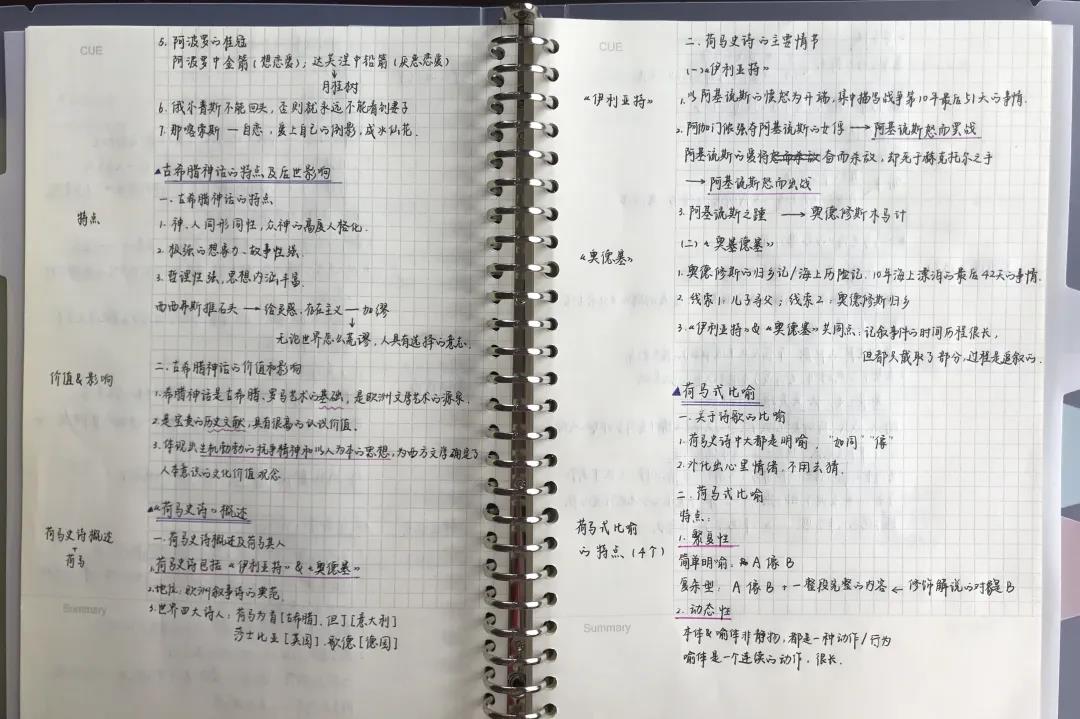 CUE
5. 阿波罗的桂冠
阿波罗中金箭(想恋爱);达芙涅中铅箭(厌恶恋爱)
↓
月桂树
6. 俄尔普斯不能回头,否则就永远不能看到妻子
7. 那喀索斯 — 自恋,爱上自己的倒影,成水仙花.
▲古希腊神话的特点及后世影响
一. 古希腊神话的特点
特点
1. 神、人同形同性,众神的高度人格化.
2. 极强的想象力、故事性强.
3. 哲理性强,思想内涵丰富.
西西弗斯推石头 → 给灵感. 存在主义 — 加缪
↓
无论世界怎么荒谬,人具有选择的意志.
价值&影响
二. 古希腊神话的价值和影响
1. 希腊神话是古希腊、罗马艺术的基础,是欧洲文学艺术的源泉.
2. 是宝贵的历史文献,具有很高的认识价值.
3. 体现出生机勃勃的抗争精神和以人为本的思想,为西方文学确定了
人本意识的文化价值观念.
▲《荷马史诗》概述
荷马史诗概述
+
荷马
一. 荷马史诗概述及荷马其人
1. 荷马史诗包括《伊利亚特》&《奥德基》
2. 地位:欧洲叙事诗的典范.
3. 世界四大诗人:荷马为首[古希腊]、但丁[意大利]
莎士比亚[英国]. 歌德[德国]
Summary
CUE
二. 荷马史诗的主要情节
(一)《伊利亚特》
《伊利亚特》
1. 以阿基琉斯的愤怒为开端,集中描写战争第10年最后51天的事情.
2. 阿伽门侬强夺阿基琉斯的女俘 → 阿基琉斯怒而罢战
阿基琉斯的爱将奋而杀敌,却死于赫克托尔之手
→ 阿基琉斯怒而出战
3. 阿基琉斯之踵 → 奥德修斯木马计
(二)《奥基德基》
《奥德基》
1. 奥德修斯的归乡记/海上历险记. 10年海上漂泊的最后42天的事情.
2. 线索1:儿子寻父;线索2:奥德修斯归乡
3.《伊利亚特》&《奥德基》共同点:记叙事件的时间历程很长,
但都只截取了部分,过程是追叙的.
▲荷马式比喻
一. 关于诗歌的比喻
1. 荷马史诗中大都是明喻. "如同""像"
2. 外化出心里情绪,不用去猜.
二. 荷马式比喻
荷马式比喻
的特点(4个)
特点:
1. 繁复性
简单明喻. A像B
复杂型:A像B + 一整段完整的内容 ← 修饰解说的对象是B
2. 动态性
Summary
本体&喻体非静物,都是一种动作/行为
喻体是一个连续的动作,很长.